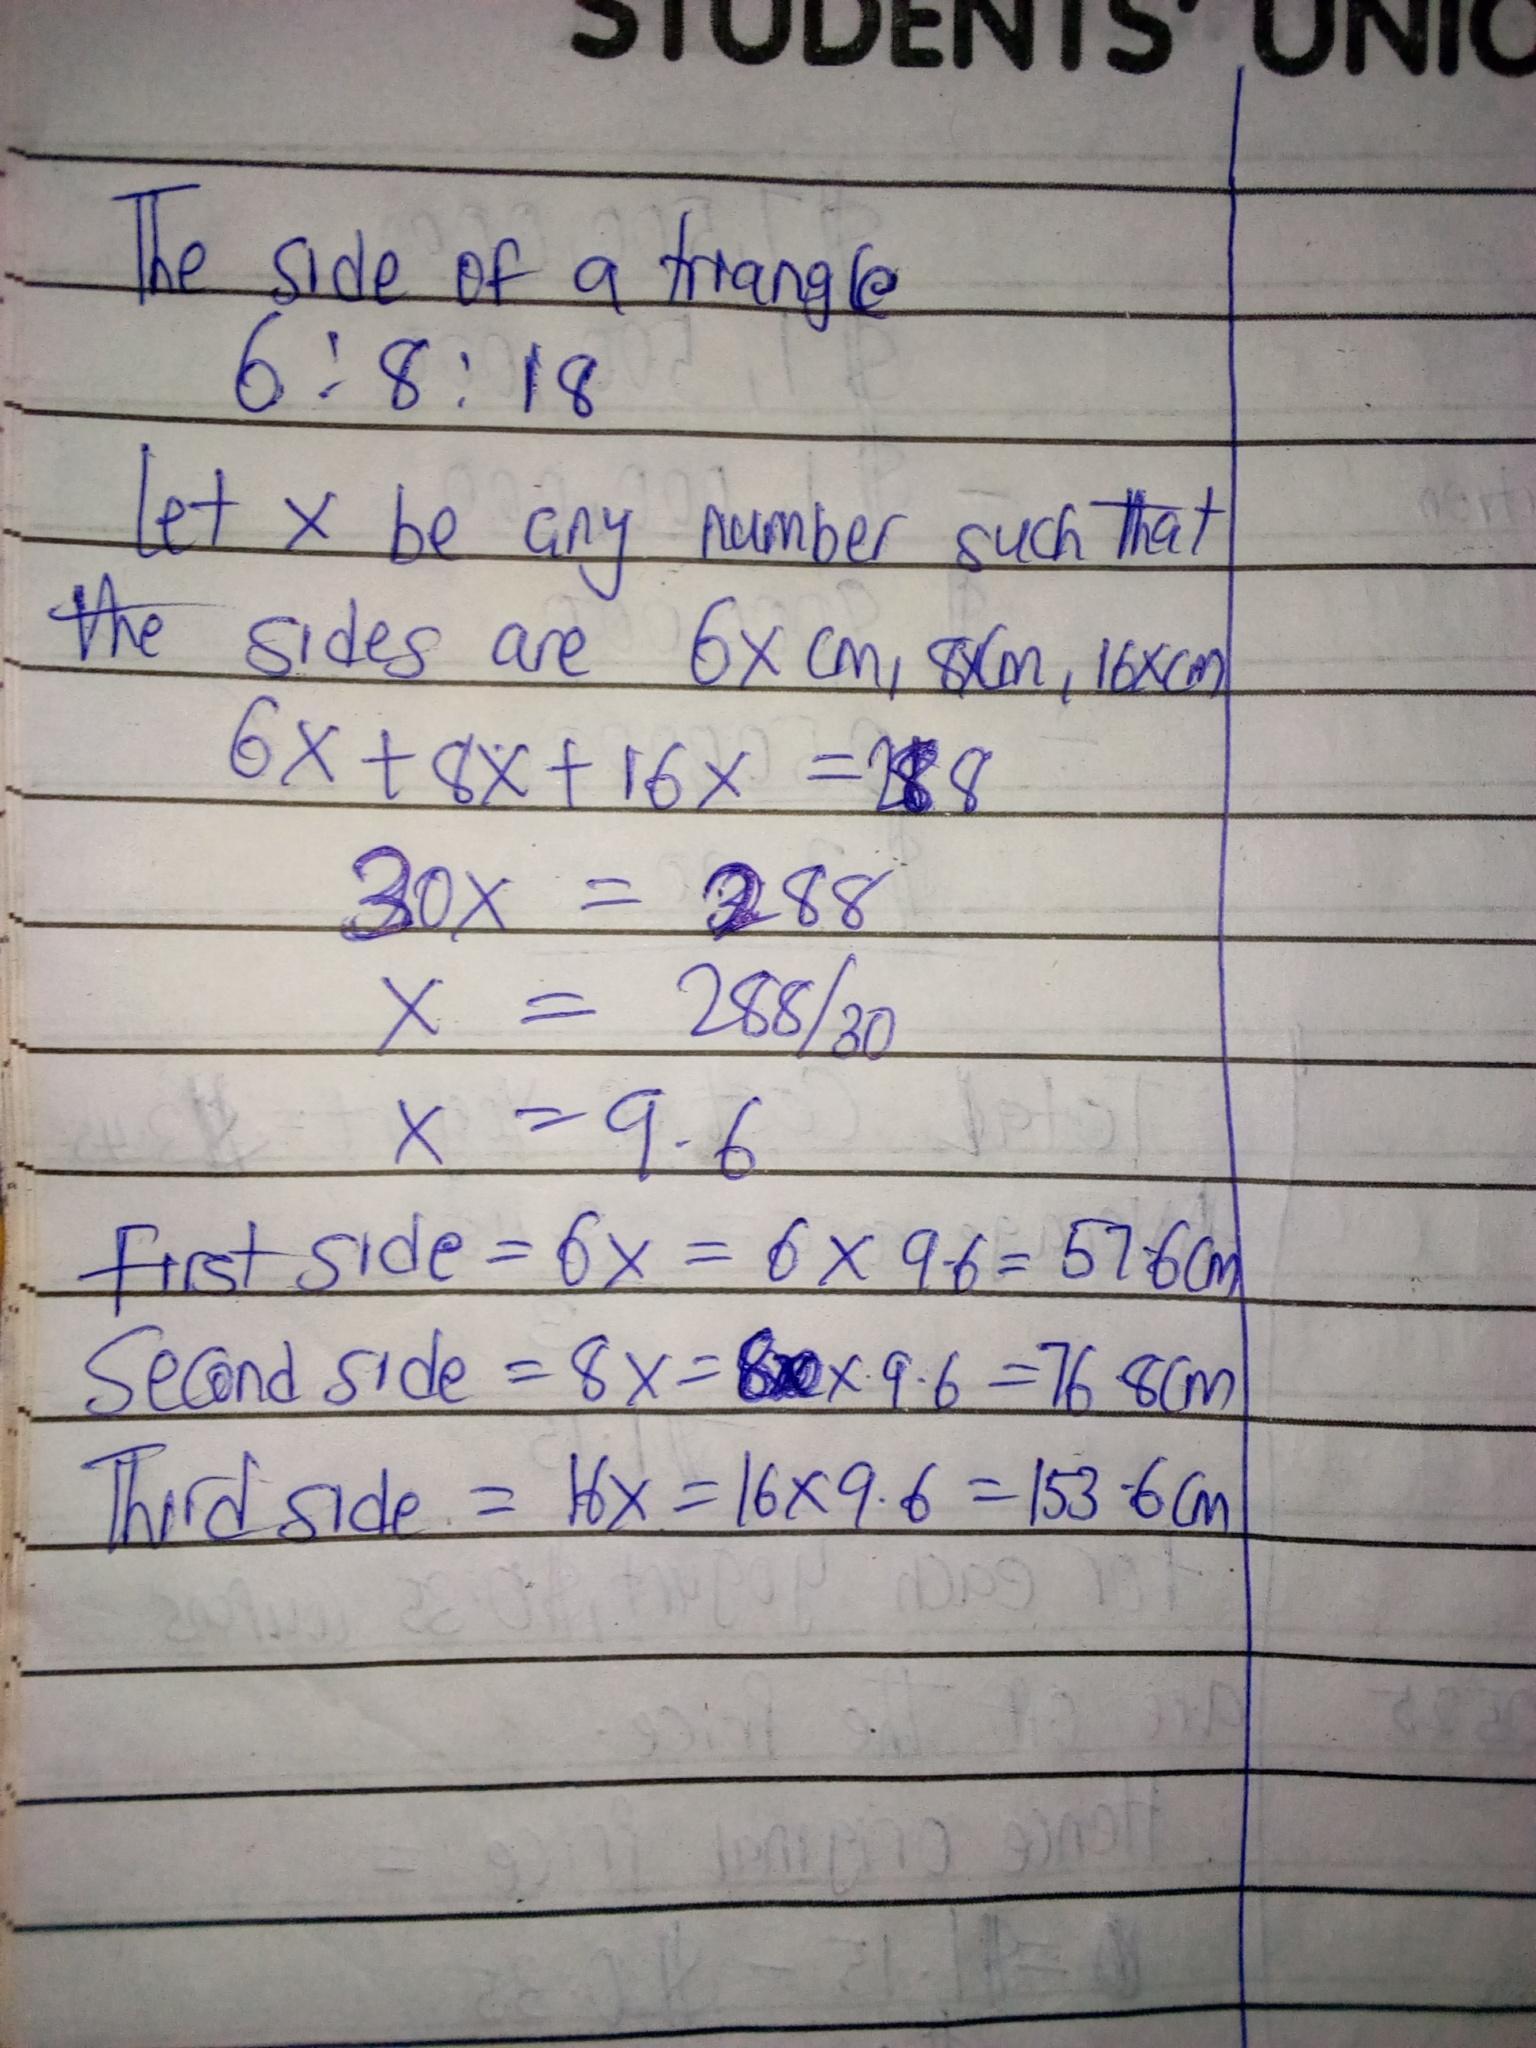 STUDENTS' UNIO
The side of a triangle
6 : 8 : 18
let x be any number such that
the sides are 6x cm, 8xcm, 16xcm
6x + 8x + 16x = 288
30x = 288
x = 288/30
x = 9.6
First side = 6x = 6 x 9.6 = 57.6cm
Second side = 8x = 8 x 9.6 = 76.8cm
Third side = 16x = 16x9.6 = 153.6cm